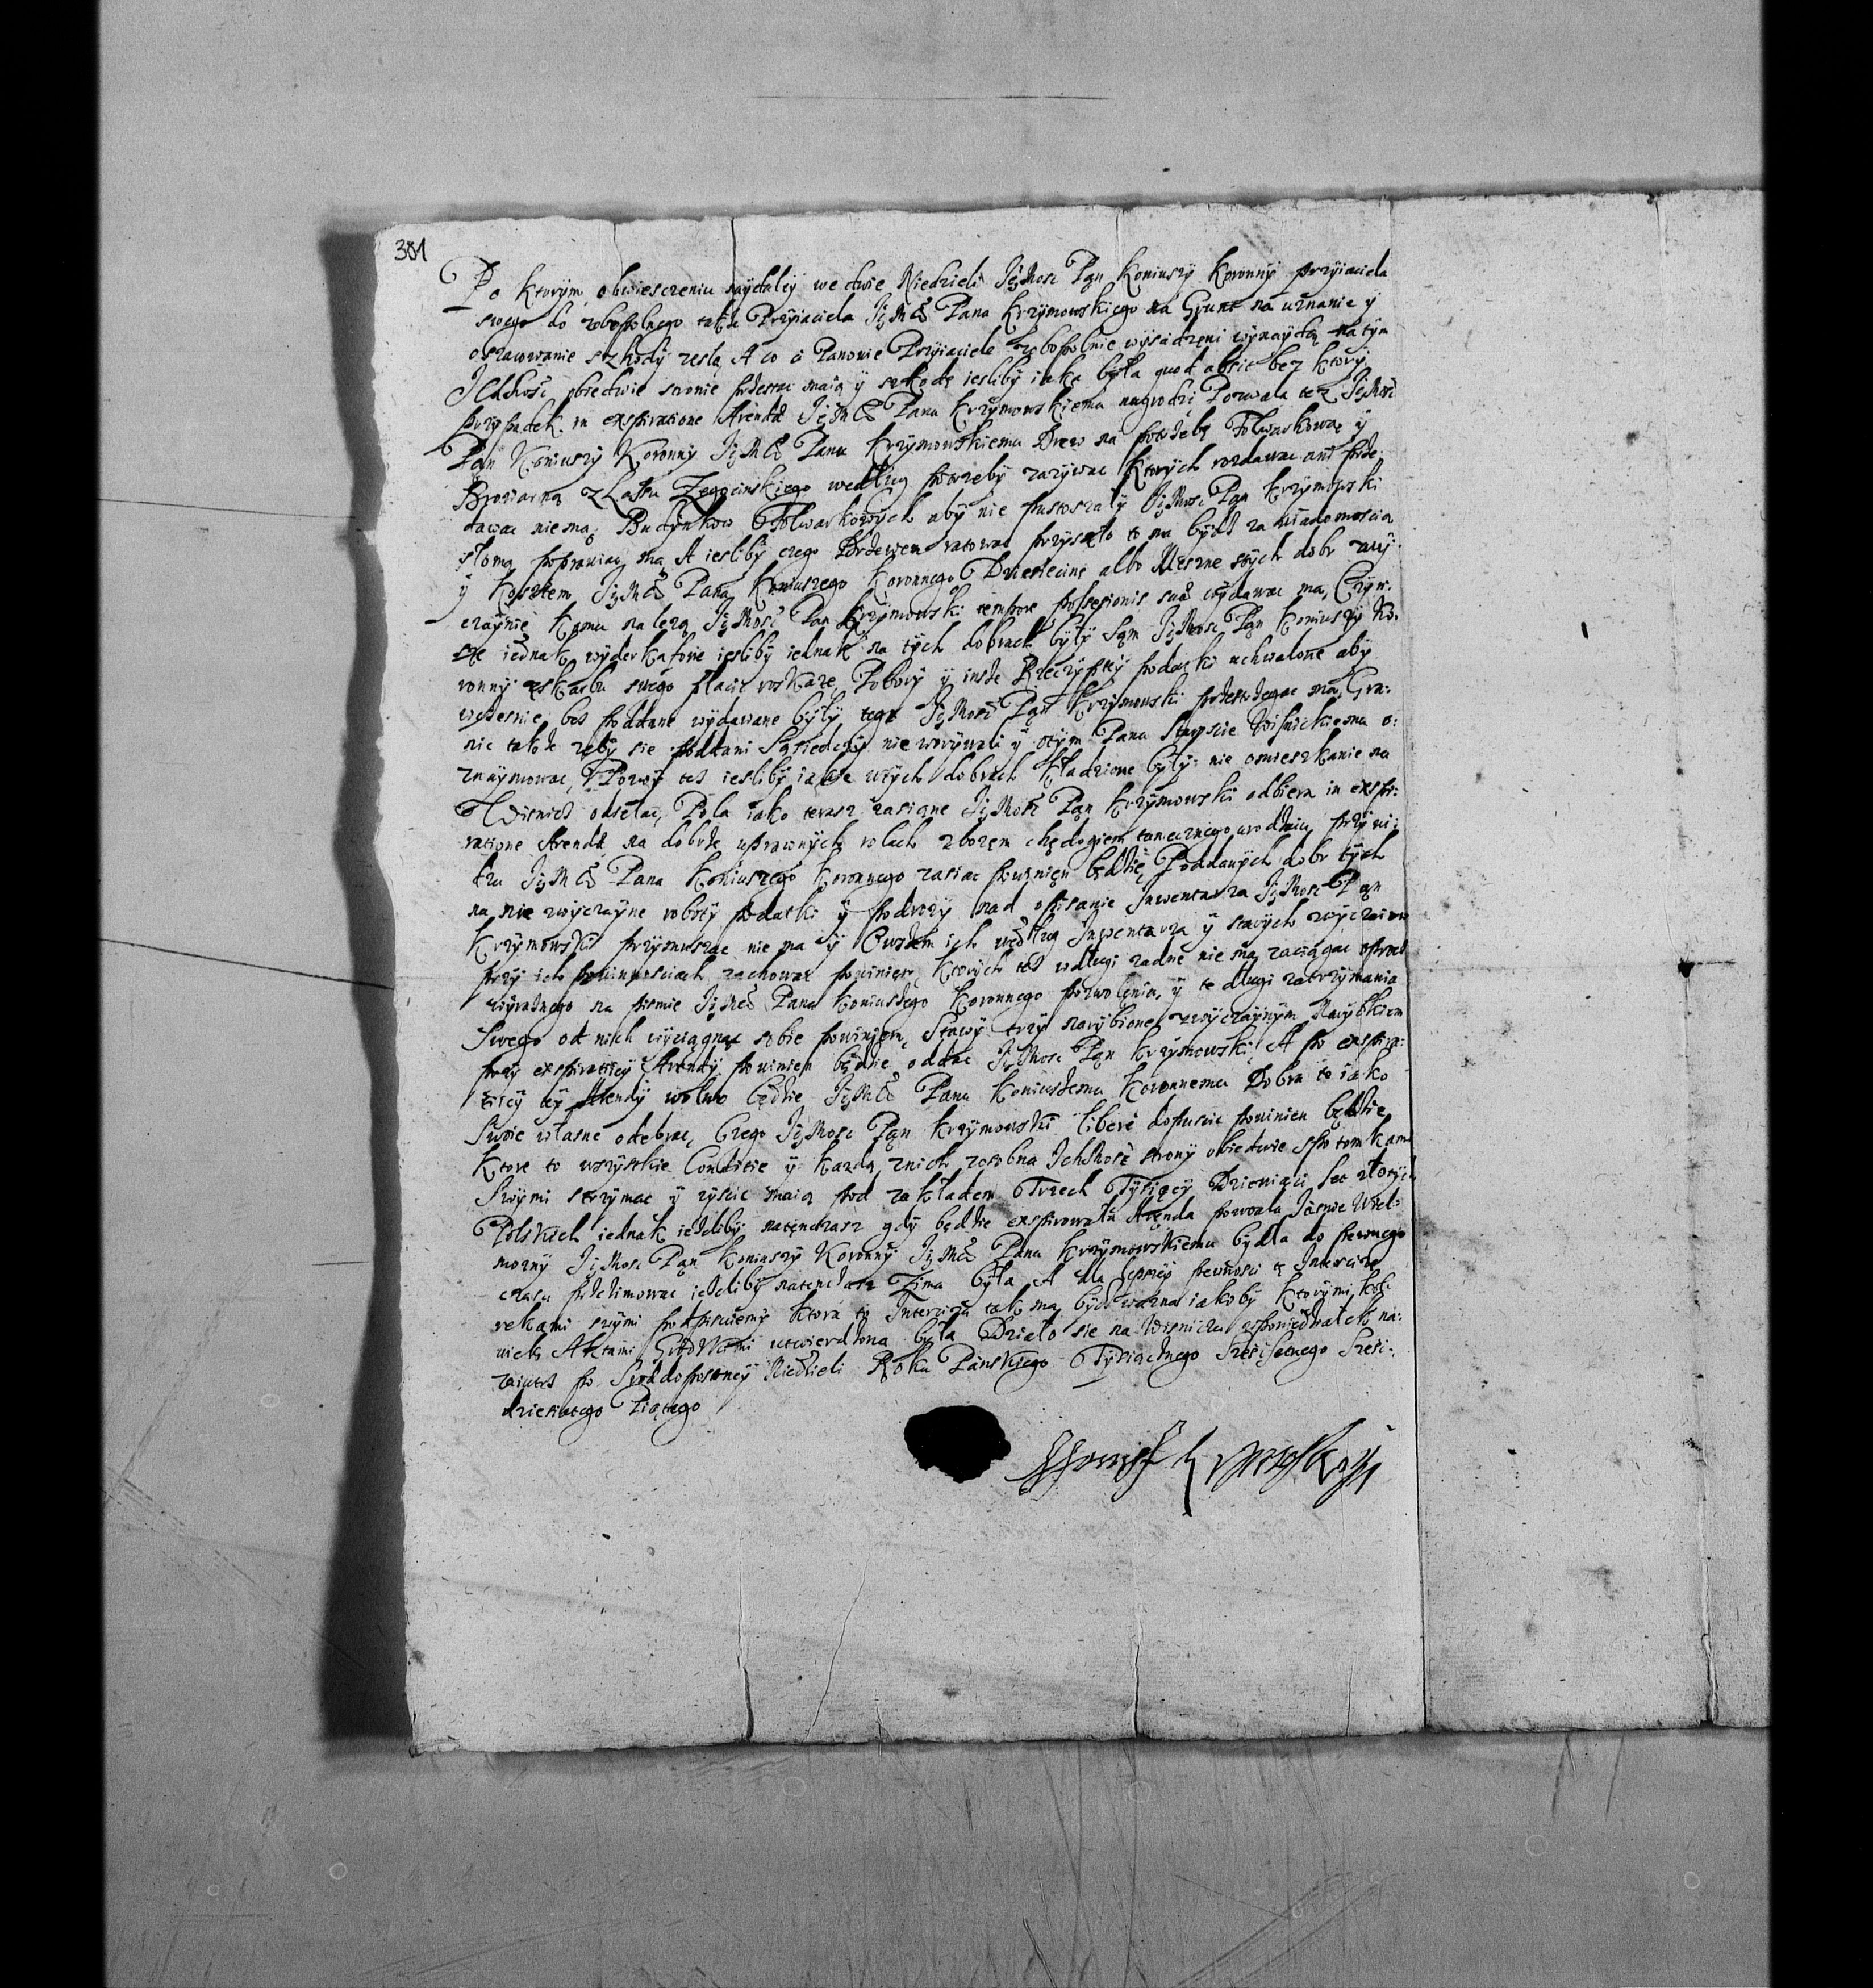 301
Po ktorym obwiesczeniu naydaley we dwie Niedzieli Jegmosc Pan Koniuszy Koronny przyiaciela
swego do zobopolnego także Przyiaciela JegMCi Pana Krzymowskiego na Grunt na uznanie y
oszacowanie szkody zesle, A co ci Panowie Przyiaciele zobopolnie wysadzeni wynaydą na tym
IchMosc obiedwie stronie przestac maią y szkodę iesliby iaka była quod absit bez ktory
przypadek in exspiratione Arendy JegMCi Panu Krzymowskiemu nagrodzi Pozwala tez Jegmosc
Pan Koniuszy Koronny JegMCi Panu Krzymowskiemu Drew na potrzebę Folwarkową y
Browarną z Lassu Zegocinskiego według potrzeby zazywac ktorych rozdawac ani prze-
dawac niema, Budynkow Folwarkowych aby nie pustoszały Jegmosc Pan Krzymowski
słomą poprawiac ma, A iesliby czego Drzewem ratowac przyszło to ma bydz za wiadomoscią
y kosztem JegMCi Pana Koniuszego Koronnego Dziesiecine albo Meszne stych dobr zwy-
czaynie komu nalezą Jegmosc Pan Krzymowski tempore possesionis suae wydawac ma, Czyn-
sze iednak wyderkafowe iesliby iednak na tych dobrach były Sam Jegmosc Pan Koniuszy Ko-
ronny zskarbu swego płacic roskaze, Pobory y insze Rzeczypltey podatki uchwalone aby
wczesnie bes poddane wydawane były tego Jegmosc Pan Krzymowski przestrzegac ma, Gra-
nic także zeby sie poddani Sąsiedczy nie wrywali y otym Panu Staroscie Wisnickiemu o-
znaymowac, Pozwy tez iesliby iakie wtych dobrach kładzione były nie omieszkanie na
Wisnicz odsełac, Pola iako teraz zasiane Jegmosc Pan Krzymowski odbiera in exspi-
ratione Arendy na dobrze uprawnych rolach zbozem chędogiem tamecznego urodzaiu przy wi-
dzu JegMCi Pana Koniuszego Koronnego zasiac powinien będzie, Poddanych dobr tych
na nie zwyczayne roboty podatki y podrozy nad opisanie Inwentarza Jegmosc Pan
Krzymowski przymuszac nie ma y owszem ich według Inwentarza y starych zwyczaiow
przy ich powinnosciach zachowac powinien, ktorych tez wdługi zadne nie ma zaciągac oprocz
wyraznego na pismie JegMCi Pana Koniuszego Koronnego pozwolenia, y te długi zatrzymania
Swego od nich wyciągnąc sobie powinien, Stawy trzy narybione zwyczaynym Narybkiem
przy exspiratiey Arendy powinien będzie oddac Jegmosc Pan Krzymowski, A po exspira-
tiey tey Arendy wolno będzie JegMCi Panu Koniuszemu Koronnemu Dobra to iako
Swoie własne odebrac, Czego Jegmosc Pan Krzymowski libere dopuscic powinien będzie,
Ktore to wszystkie Conditie y kazdą znich zosobna Ichmosc strony obiedwie spotomkami
Swymi strzymac y zyscic maią pod zakładem Trzech Tysięcy Dziewiąci Set złotych
Polskich iednak iezliby natenczasz gdy będzie exspirowała Arenda pozwala Jasnie Wiel-
mozny Jegmosc Pan Koniuszy Koronny JegMCi Panu Krzymowskiemu bydła do pewnego
czasu przezimowac iezliby natenczasz Zima była A dla lepszey pewnosci te Intercizę
rekami swymi podpisuiemy ktora to Interciza tak ma bydz wazna iakoby ktorymi kol-
wiek Aktami Grodzkimi utwierdzona była Działo sie na Wisniczu wponiedziałek na-
zaiutrz po Srzodopostney Niedzieli Roku Panskiego Tysiącznego Szescsetnego Szesc-
dziesiątego Piątego